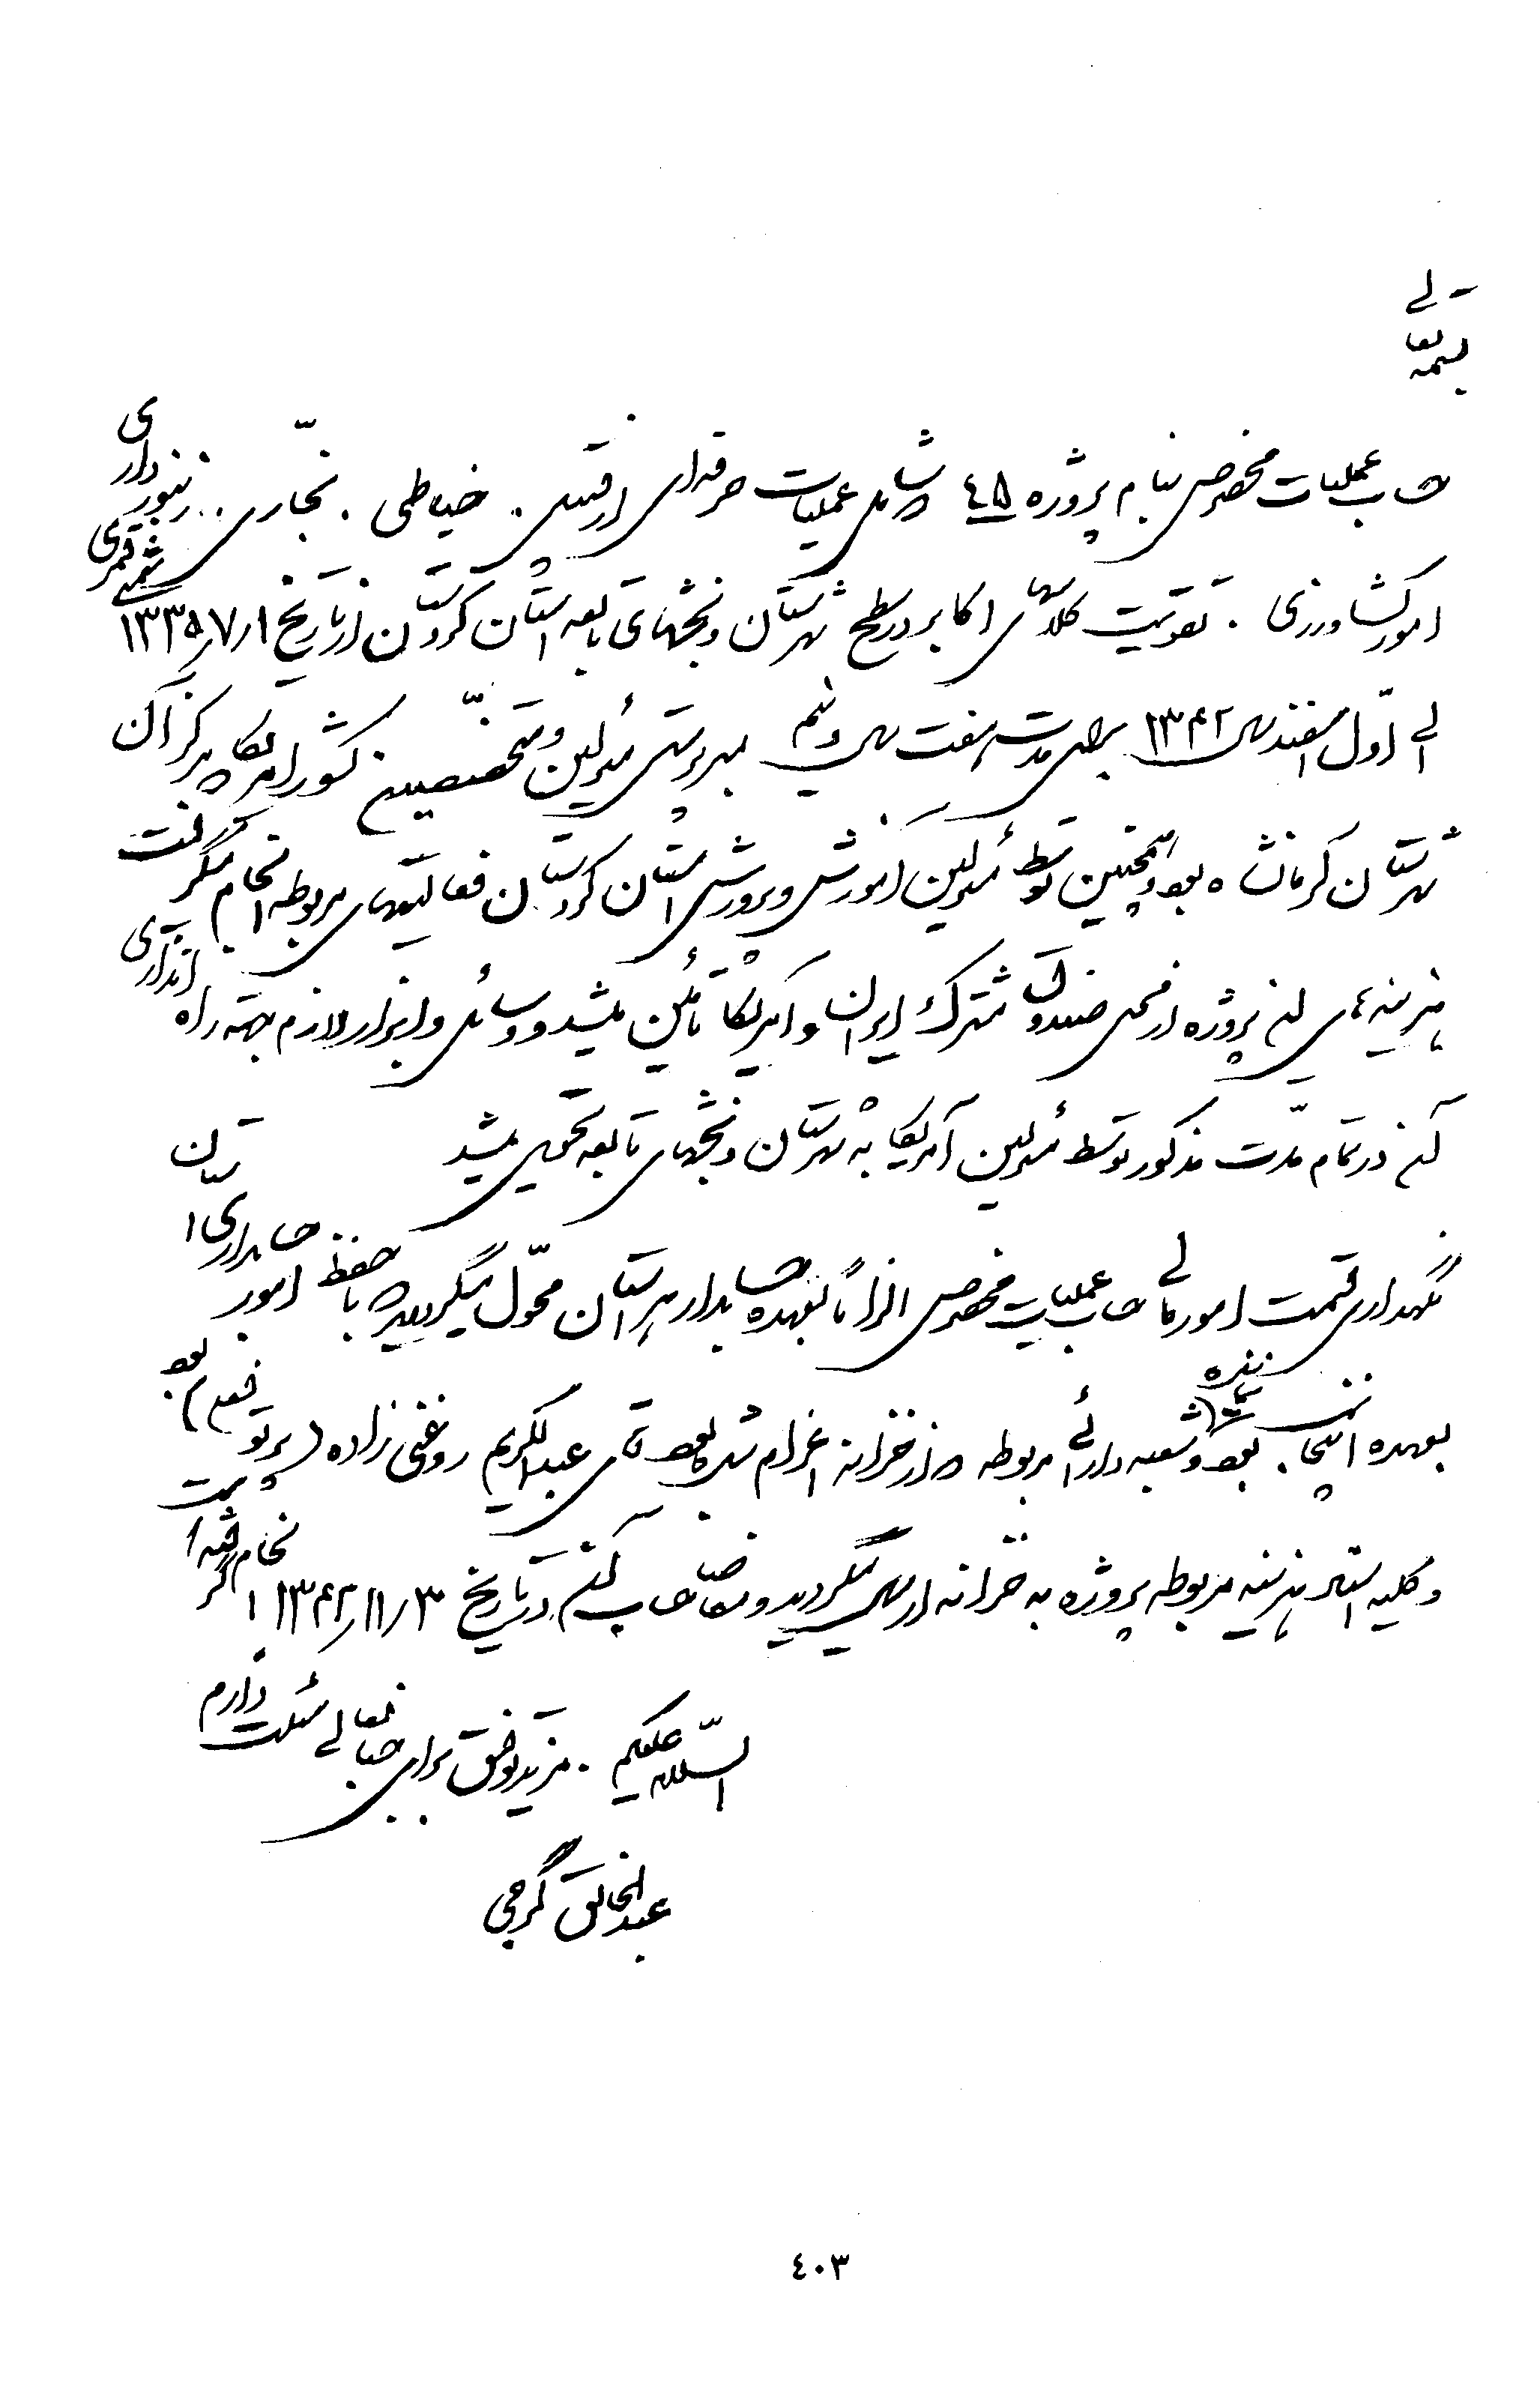 بسمه تعالی
حساب عملیات مخصوص بنام پروژه ٤٥ که شامل عملیات حرفه‌ای از قبیل . خیاطی . نجّاری . زنبورداری
امور کشاورزی . تقویت کلاسهای اکابر در سطح شهرستان و بخشهای تابعه استان کردستان از تاریخ ۱ر۷ر۱۳۳۵ شمسی
الی اوّل اسفند سال ۱۳۴۲ برای مدت هفت سال و نیم بسرپرستی مسئولین و متخصصین کشور امریکا که مرکز آن
شهرستان کرمانشاه بود و همچنین توسط مسئولین آموزش و پرورش استان کردستان فعالیتهای مربوطه انجام میگرفت
هزینه‌های این پروژه از محل صندوق مشترک ایران و آمریکا تأمین میشد و وسائل و ابزار لازم جهة راه اندازی
آن در تمام مدّت مذکور توسط مسئولین آمریکا به شهرستان و بخشهای تابعه تحویل میشد
نگهداری قسمت امور مالی حساب عملیات مخصوص الزاماً بعهده حسابدار شهرستان محوّل میگردید که با حفظ امور حسابداری استان
بعهده اینجانب نماینده بود و شعبه دارائی مربوطه که از خزانه اعزام شده بود آقای عبدالکریم روغنی زاده (پرتو) بود
و کلیه اسناد هزینه مربوطه پروژه به خزانه ارسال میگردید و مفاصا حساب آن در تاریخ ۳ر۱۱ر۱۳۴۲ انجام گرفته است
السّلام علیکم . مزید توفیق برای جنابعالی مسئلت دارم
عبدالخالق گرجی
٤٠٣